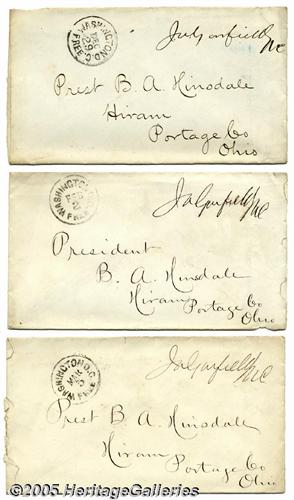 WASHINGTON D.C.
29
FREE
JAGarfield MC
Prest B. A. Hinsdale
Hiram
Portage Co
Ohio
WASHINGTON
FEB
2
FREE
JAGarfield MC
President
B. A. Hinsdale
Hiram
Portage Co
Ohio
WASHINGTON D.C.
MAR
FREE
JAGarfield MC
Prest B. A. Hinsdale
Hiram
Portage Co
Ohio
©2005 HeritageGalleries